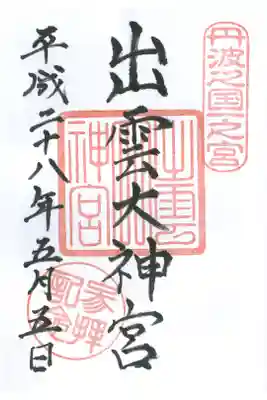 丹波之国一之宮
出雲大神宮
平成二十八年五月五日
参拝記念